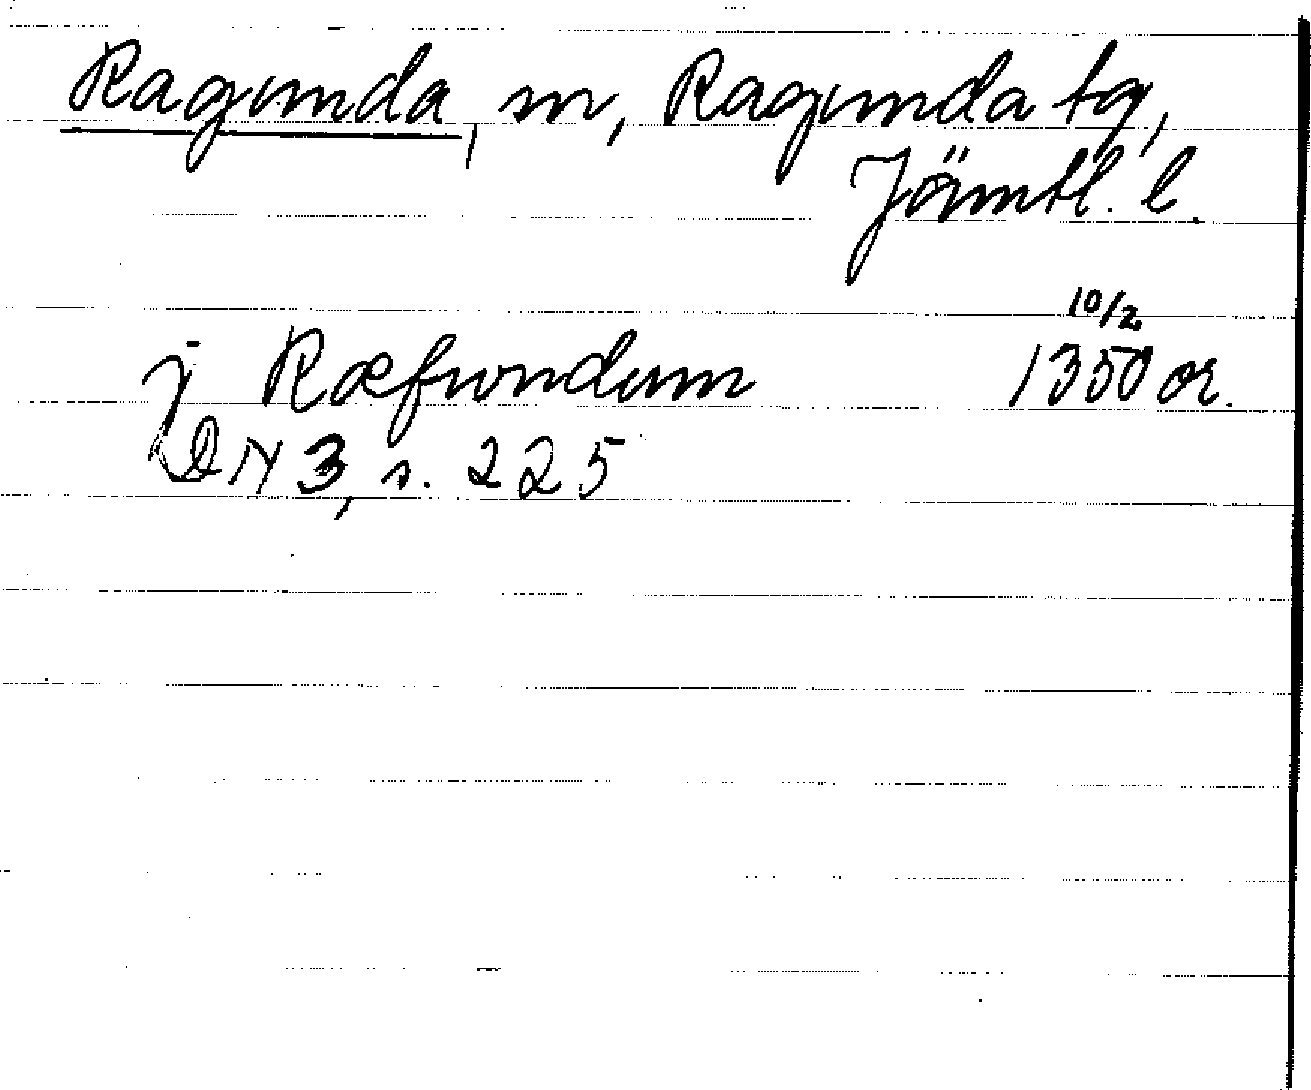 Ragunda, sn, Ragunda tg,
Jämtl. l.
10/2
j Ræfwndum 1350 or.
DN 3, s. 225